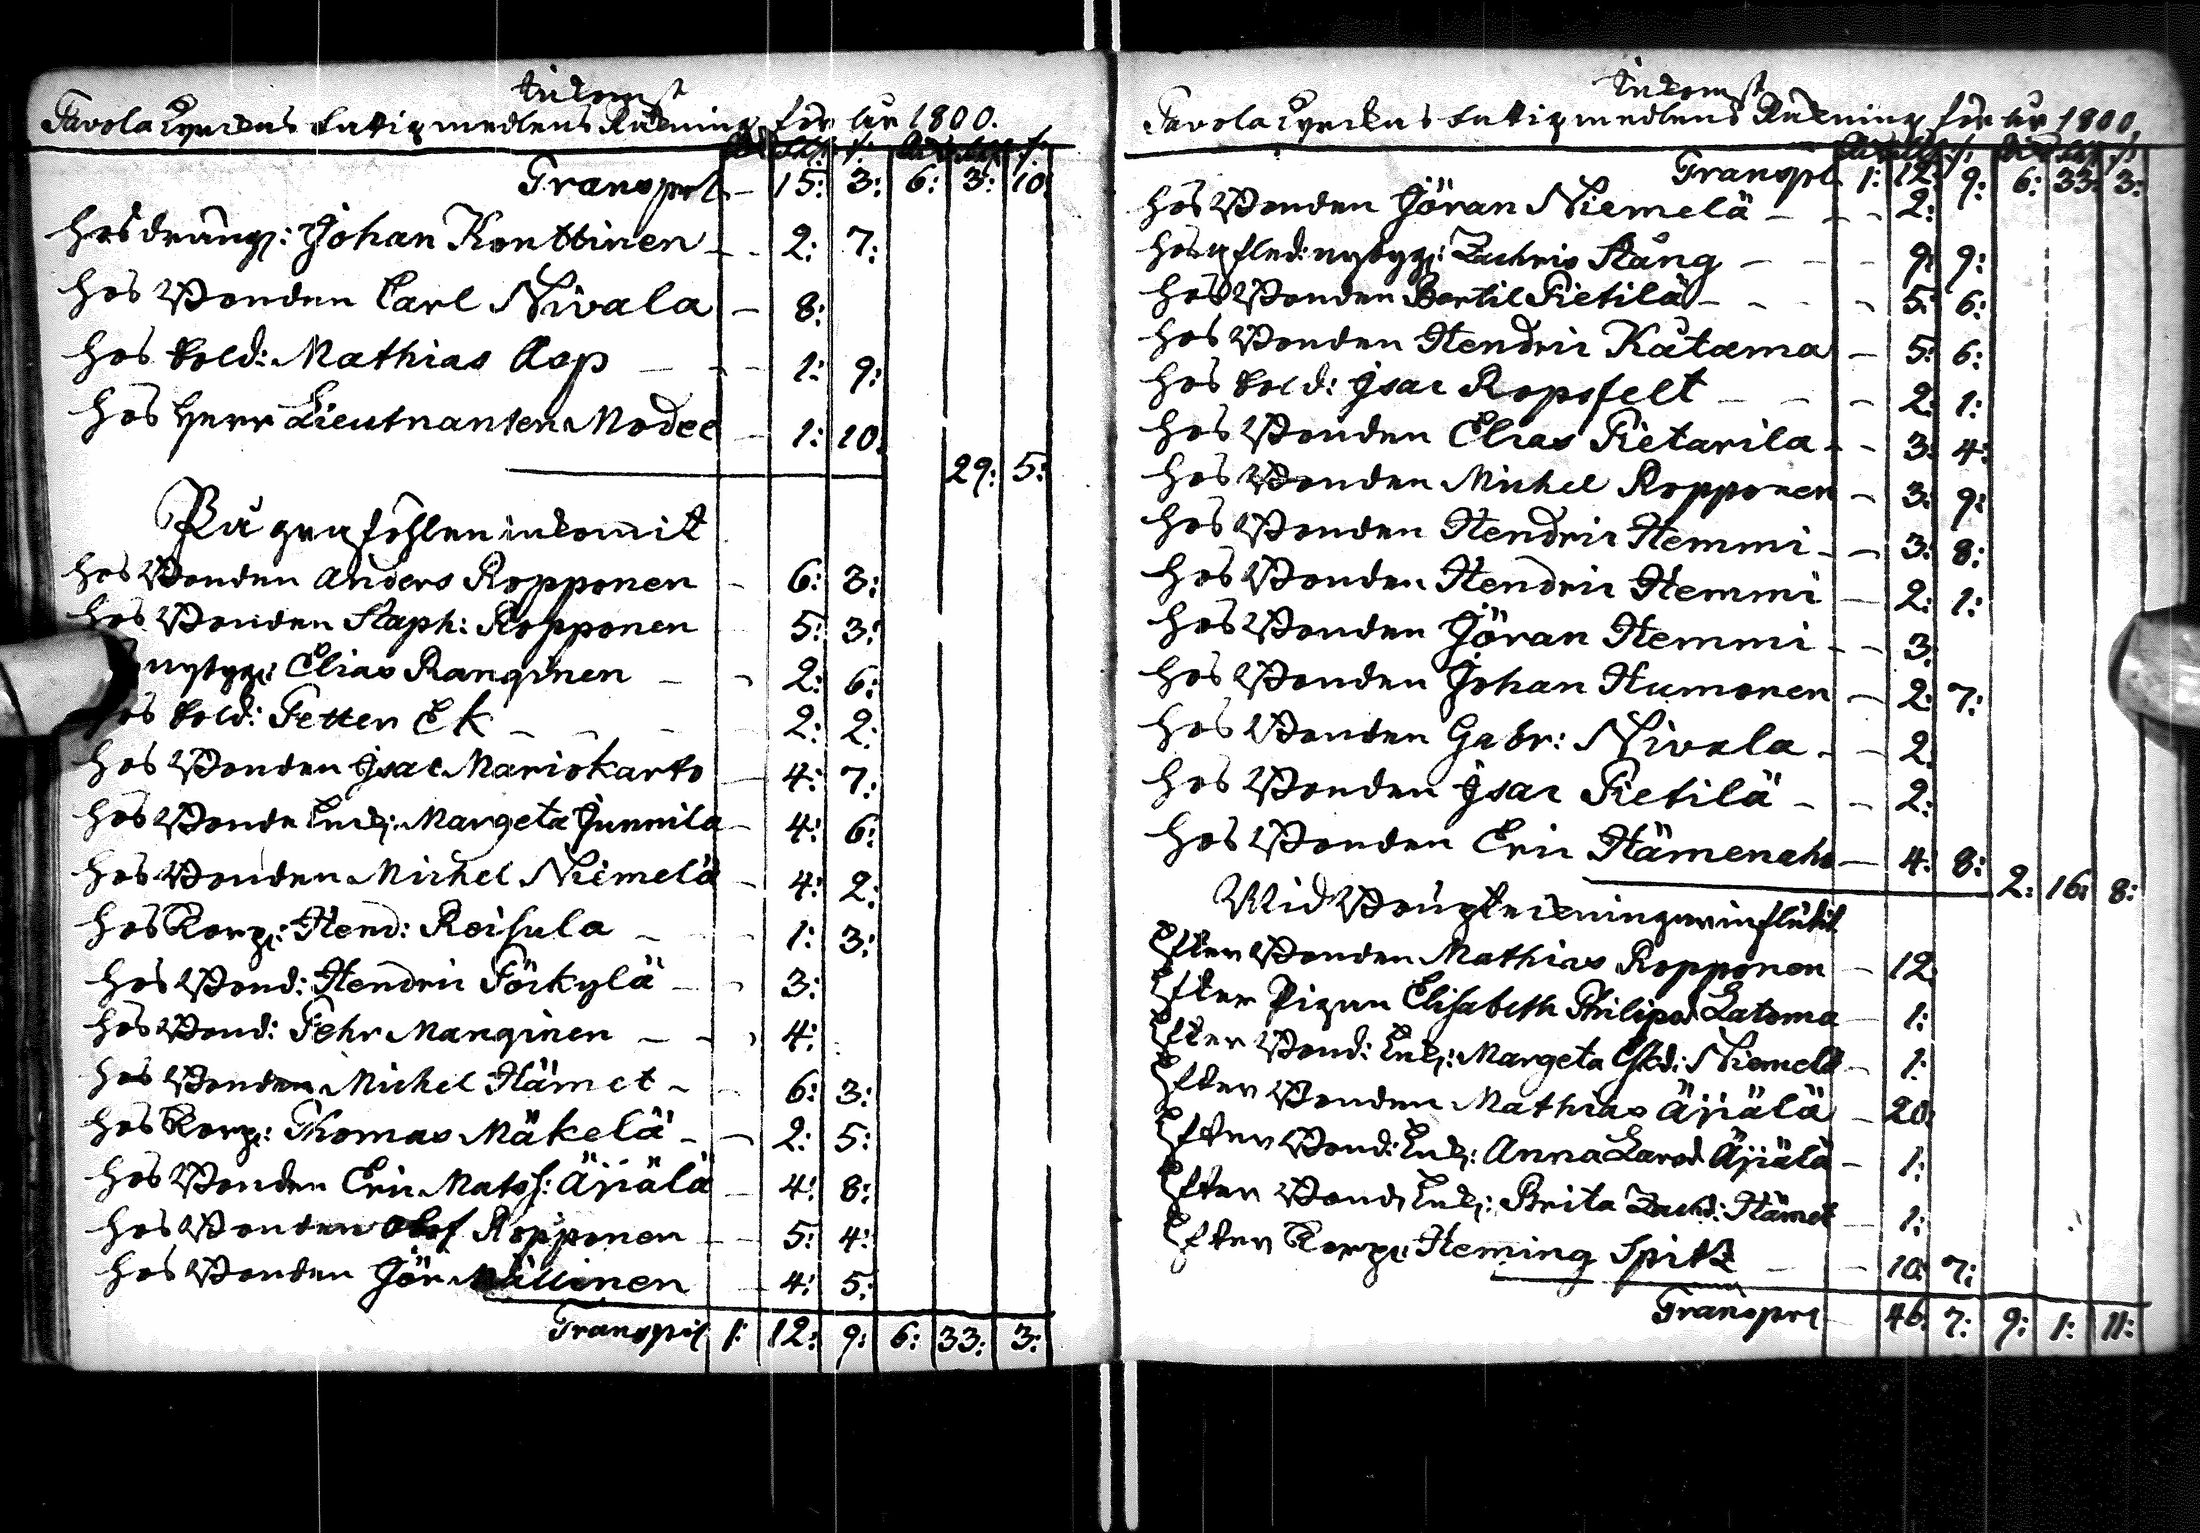 Inkomst
Pavola Kyrckas Fattigmedlens Räkning för år 1800.
Rd: Sk: r: Rd: Sk: r:
Transport – 15: 3: 6: 3: 10:
hos dräng: Johan Konttinen – – 2: 7:
hos Bonden Carl Nivala – 8:
hos Sold: Mathias Asp – – – 1: 9:
hos Herr Lieutnanten Modee – 1: 10:
29: 5:
På graföhlen inkomit
hos Bonden Anders Ropponen – 6: 3:
hos Bonden Staph: Ropponen – 5: 3:
nybygg: Elias Ranginen – – 2: 6:
hos Sold: Petter Ek – – – 2: 2:
hos Bonden Isac Mariokarto – 4: 7:
hos Bonde Enk: Margeta Junnila – 4: 6:
hos Bonden Michel Niemelä – 4: 2:
hos Korp: Hend: Reisula – – 1: 3:
hos Bond: Hendric Törkylä – – 3:
hos Bond: Pehr Manginen – – – 4:
hos Bonden Michel Hämet – – 6: 3:
hos Korp: Thomas Mäkelä – – 2: 5:
hos Bonden Eric Matss: Äijälä – 4: 8:
hos Bonden Olof Ropponen – – 5: 4:
hos Bonden Jör Mällinen – 4: 5:
Transport 1: 12: 9: 6: 33: 3:
Inkomst
Pavola Kyrckas Fattigmedlens Räkning för år 1800.
Rd: Sk: r: Rd: Sk: r:
Transpt. 1: 12: 9: 6: 33: 3:
hos Bonden Jöran Niemelä – – – 2:
hos afled: nybygg: Zachris Stång – – – 9: 9:
hos Bonden Bertil Pietilä – – – – 5: 6:
hos Bonden Hendric Kåtama – 5: 6:
hos Sold: Isac Ropofelt – – – 2: 1:
hos Bonden Elias Pietarila – – 3: 4:
hos Bonden Michel Ropponen – 3: 9:
hos Bonden Hendric Hemmi – – 3: 8:
hos Bonden Hendric Hemmi – 2: 1:
hos Bonden Jöran Hemmi – – 3:
hos Bonden Johan Humonen – 2: 7:
hos Bonden Gabr: Nivala – – 2:
hos Bonden Isac Pietilä – – 2:
hos Bonden Eric Hämenaho – 4: 8:
2: 16: 8:
Wid influtit
Efter Bonden Mathias Ropponen – 12:
Efter Pigan Elisabeth Philipsd. Latoma – 1:
Efter Bond: Enk: Margeta Niemelä – 1:
Efter Bonden Mathias Äijälä – 20:
Efter Bond: Enk: Anna Larsd. Äijälä – 1:
Efter Bond: Enk: Brita Zachd: Hämet – 1:
Efter Korp: Heming Spitz – – 10: 7:
Transport 46: 7: 9: 1: 11: